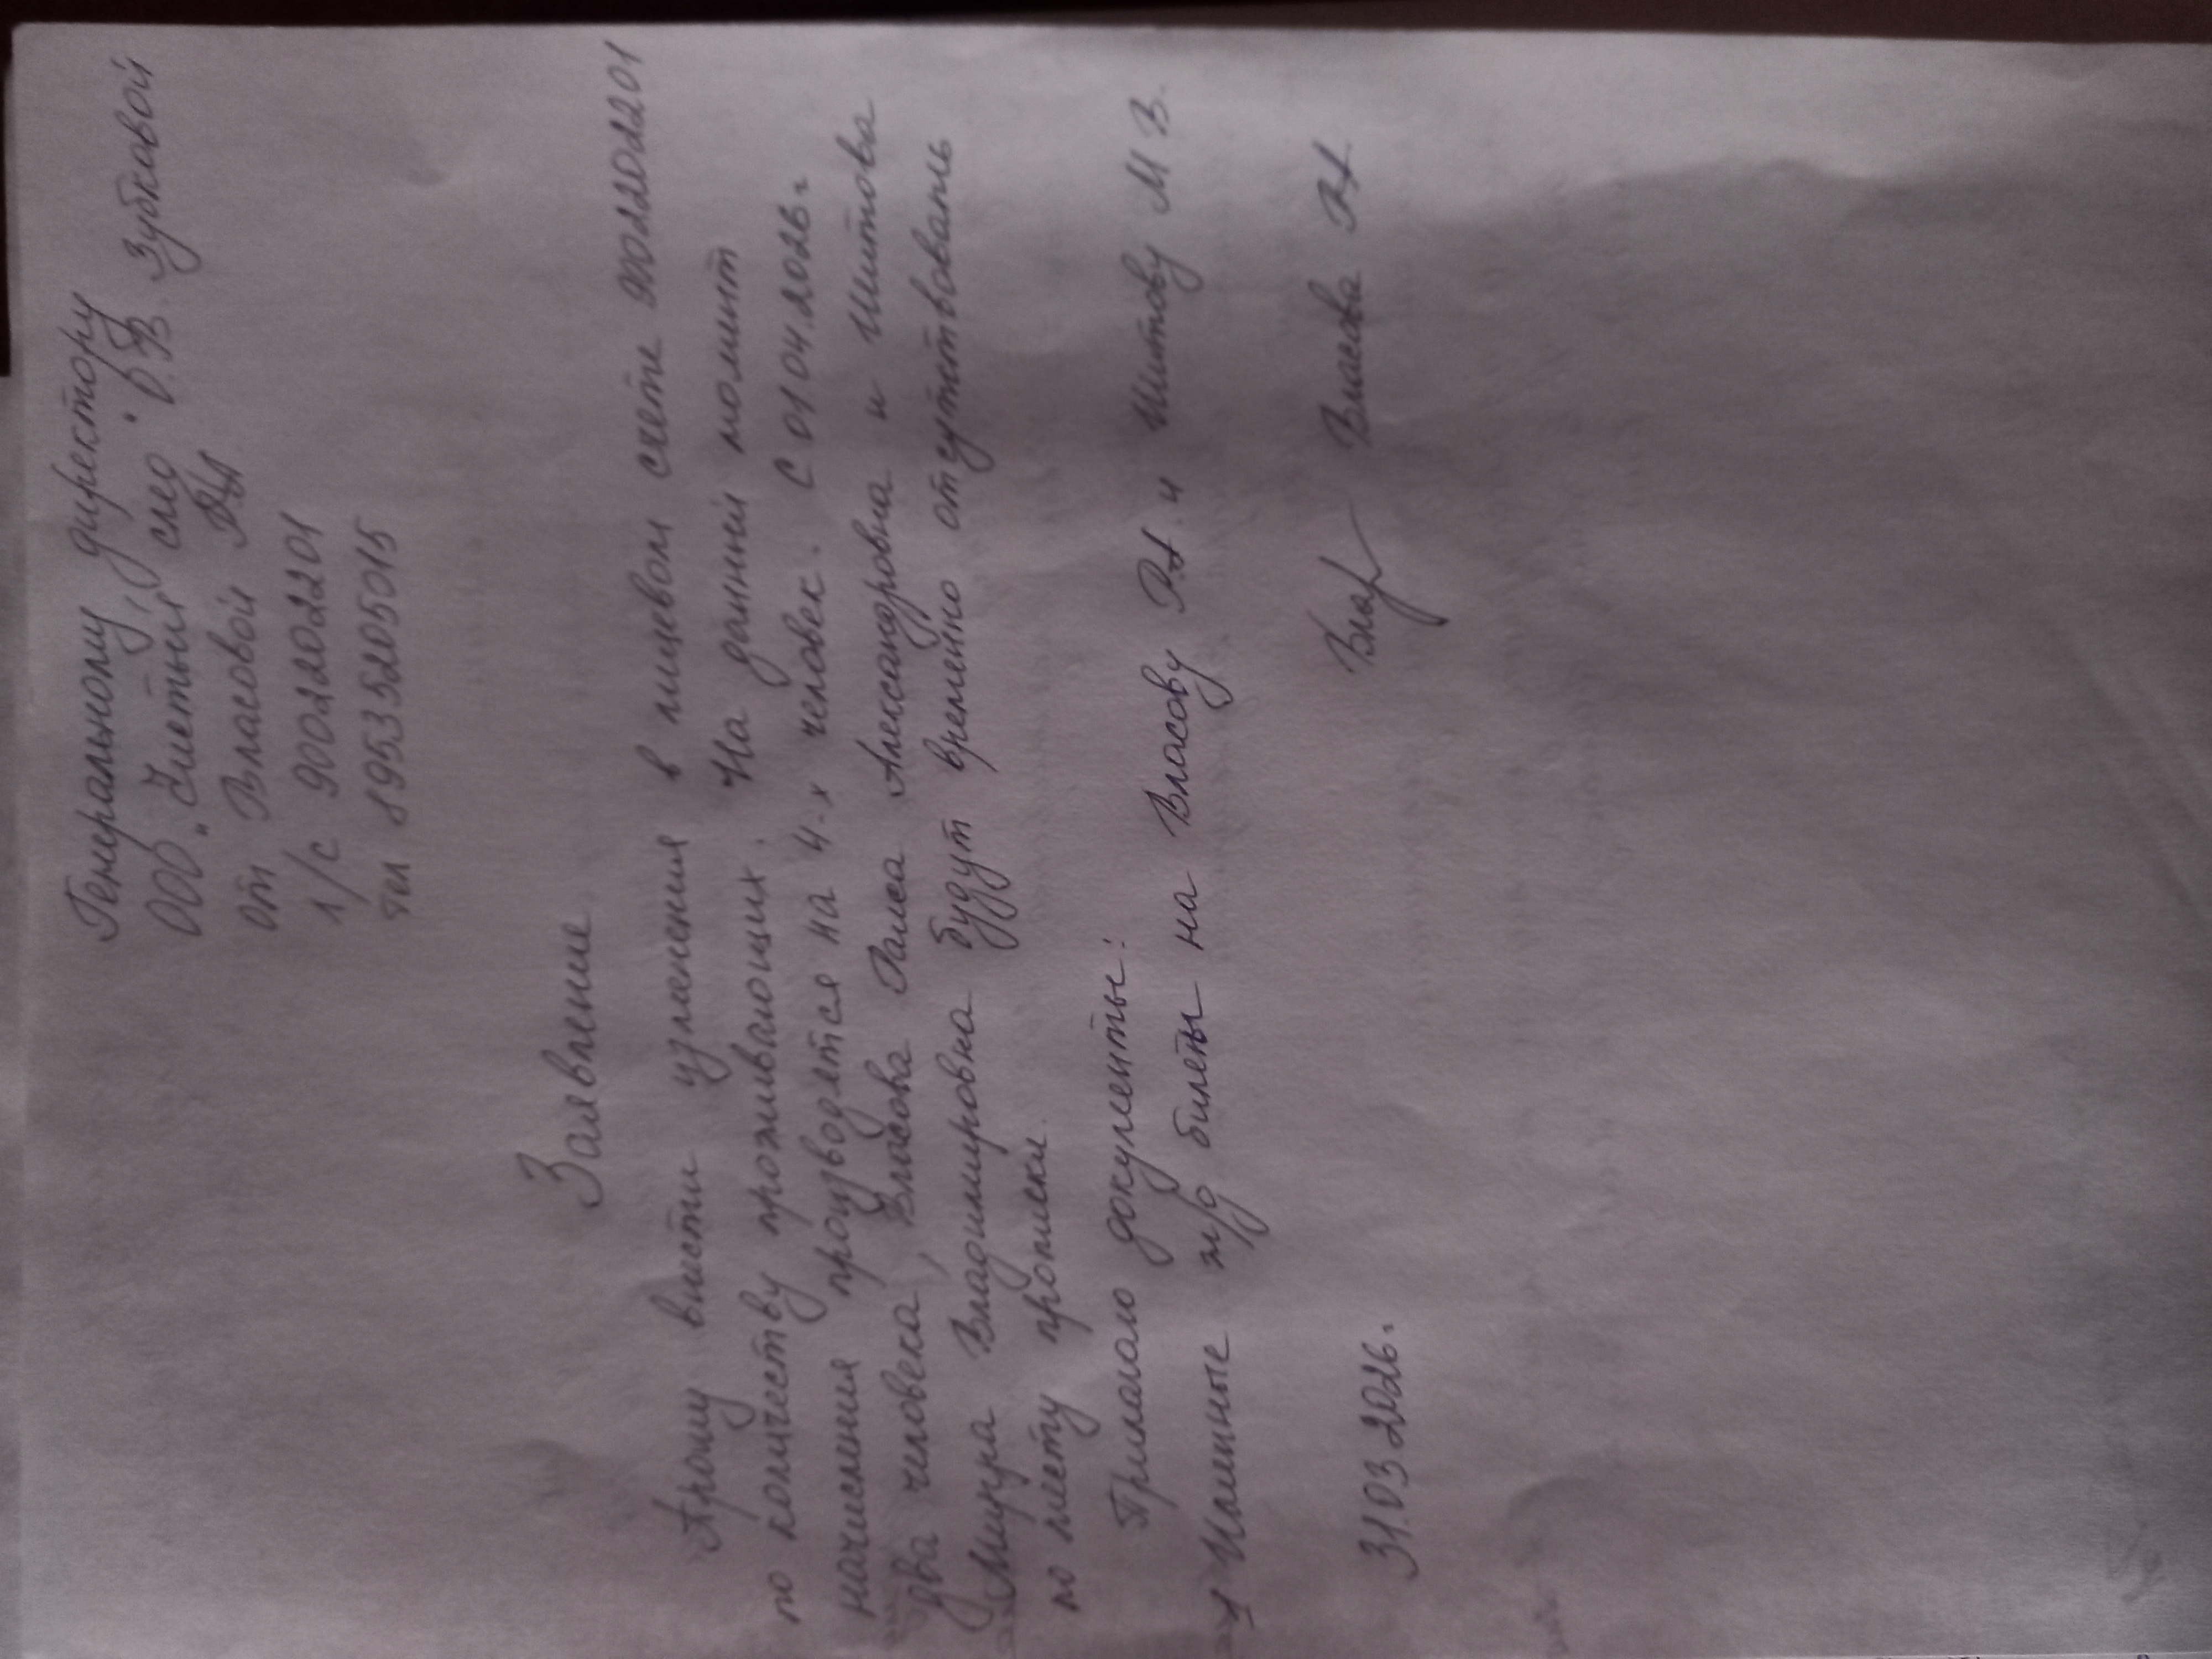 Генеральному директору
ООО "Чистый слео" О.В. Зубковой
от Власовой Р.А.
л/с 9002202201
тел 89535205015
Заявление
Прошу внести изменения в лицевом счете 9002202201
по количеству проживающих. На данный момент
начисления производятся на 4-х человек. С 01.04.2026г
два человека, Власова Раиса Александровна и Шитова
Мирра Владимировна будут временно отсутствовать
по месту прописки.
Прилагаю документы:
1 Именные ж/д билеты на Власову Р.А. и Шитову М В.
31.03.2026г. Влас Власова Р.А.